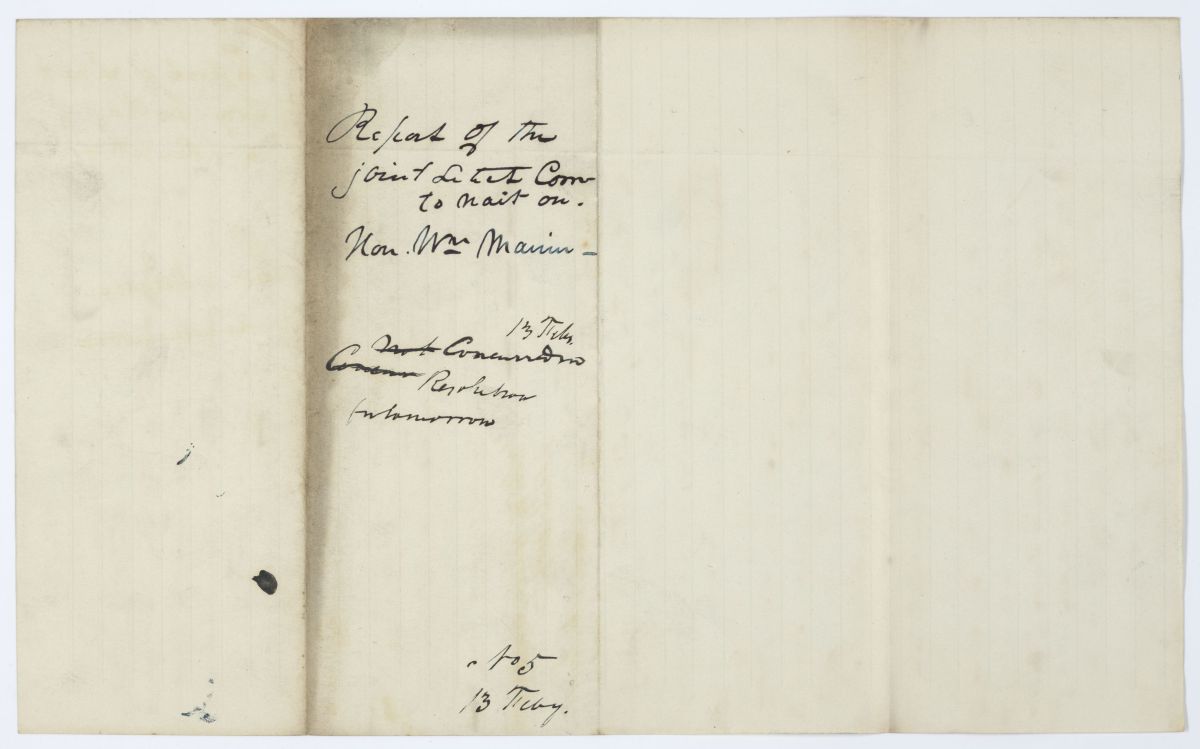 Report of the
joint Select Com
to wait on.
Hon. Wm
13 Feby.
Not Concurred in
Concur Resolution
for tomorrow
No 5
13 Feby.